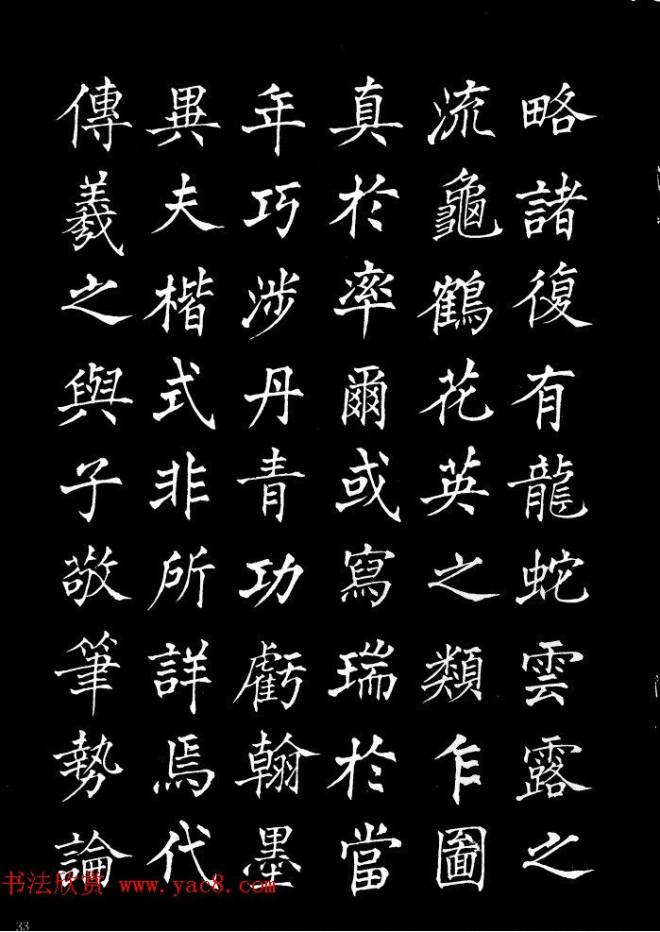 略諸復有龍蛇雲露之
流龜鶴花英之類乍圖
真於率爾或寫瑞於當
年巧涉丹青功虧翰墨
異夫楷式非所詳焉代
傳羲之與子敬筆勢論
书法欣赏 www.yac8.com
33